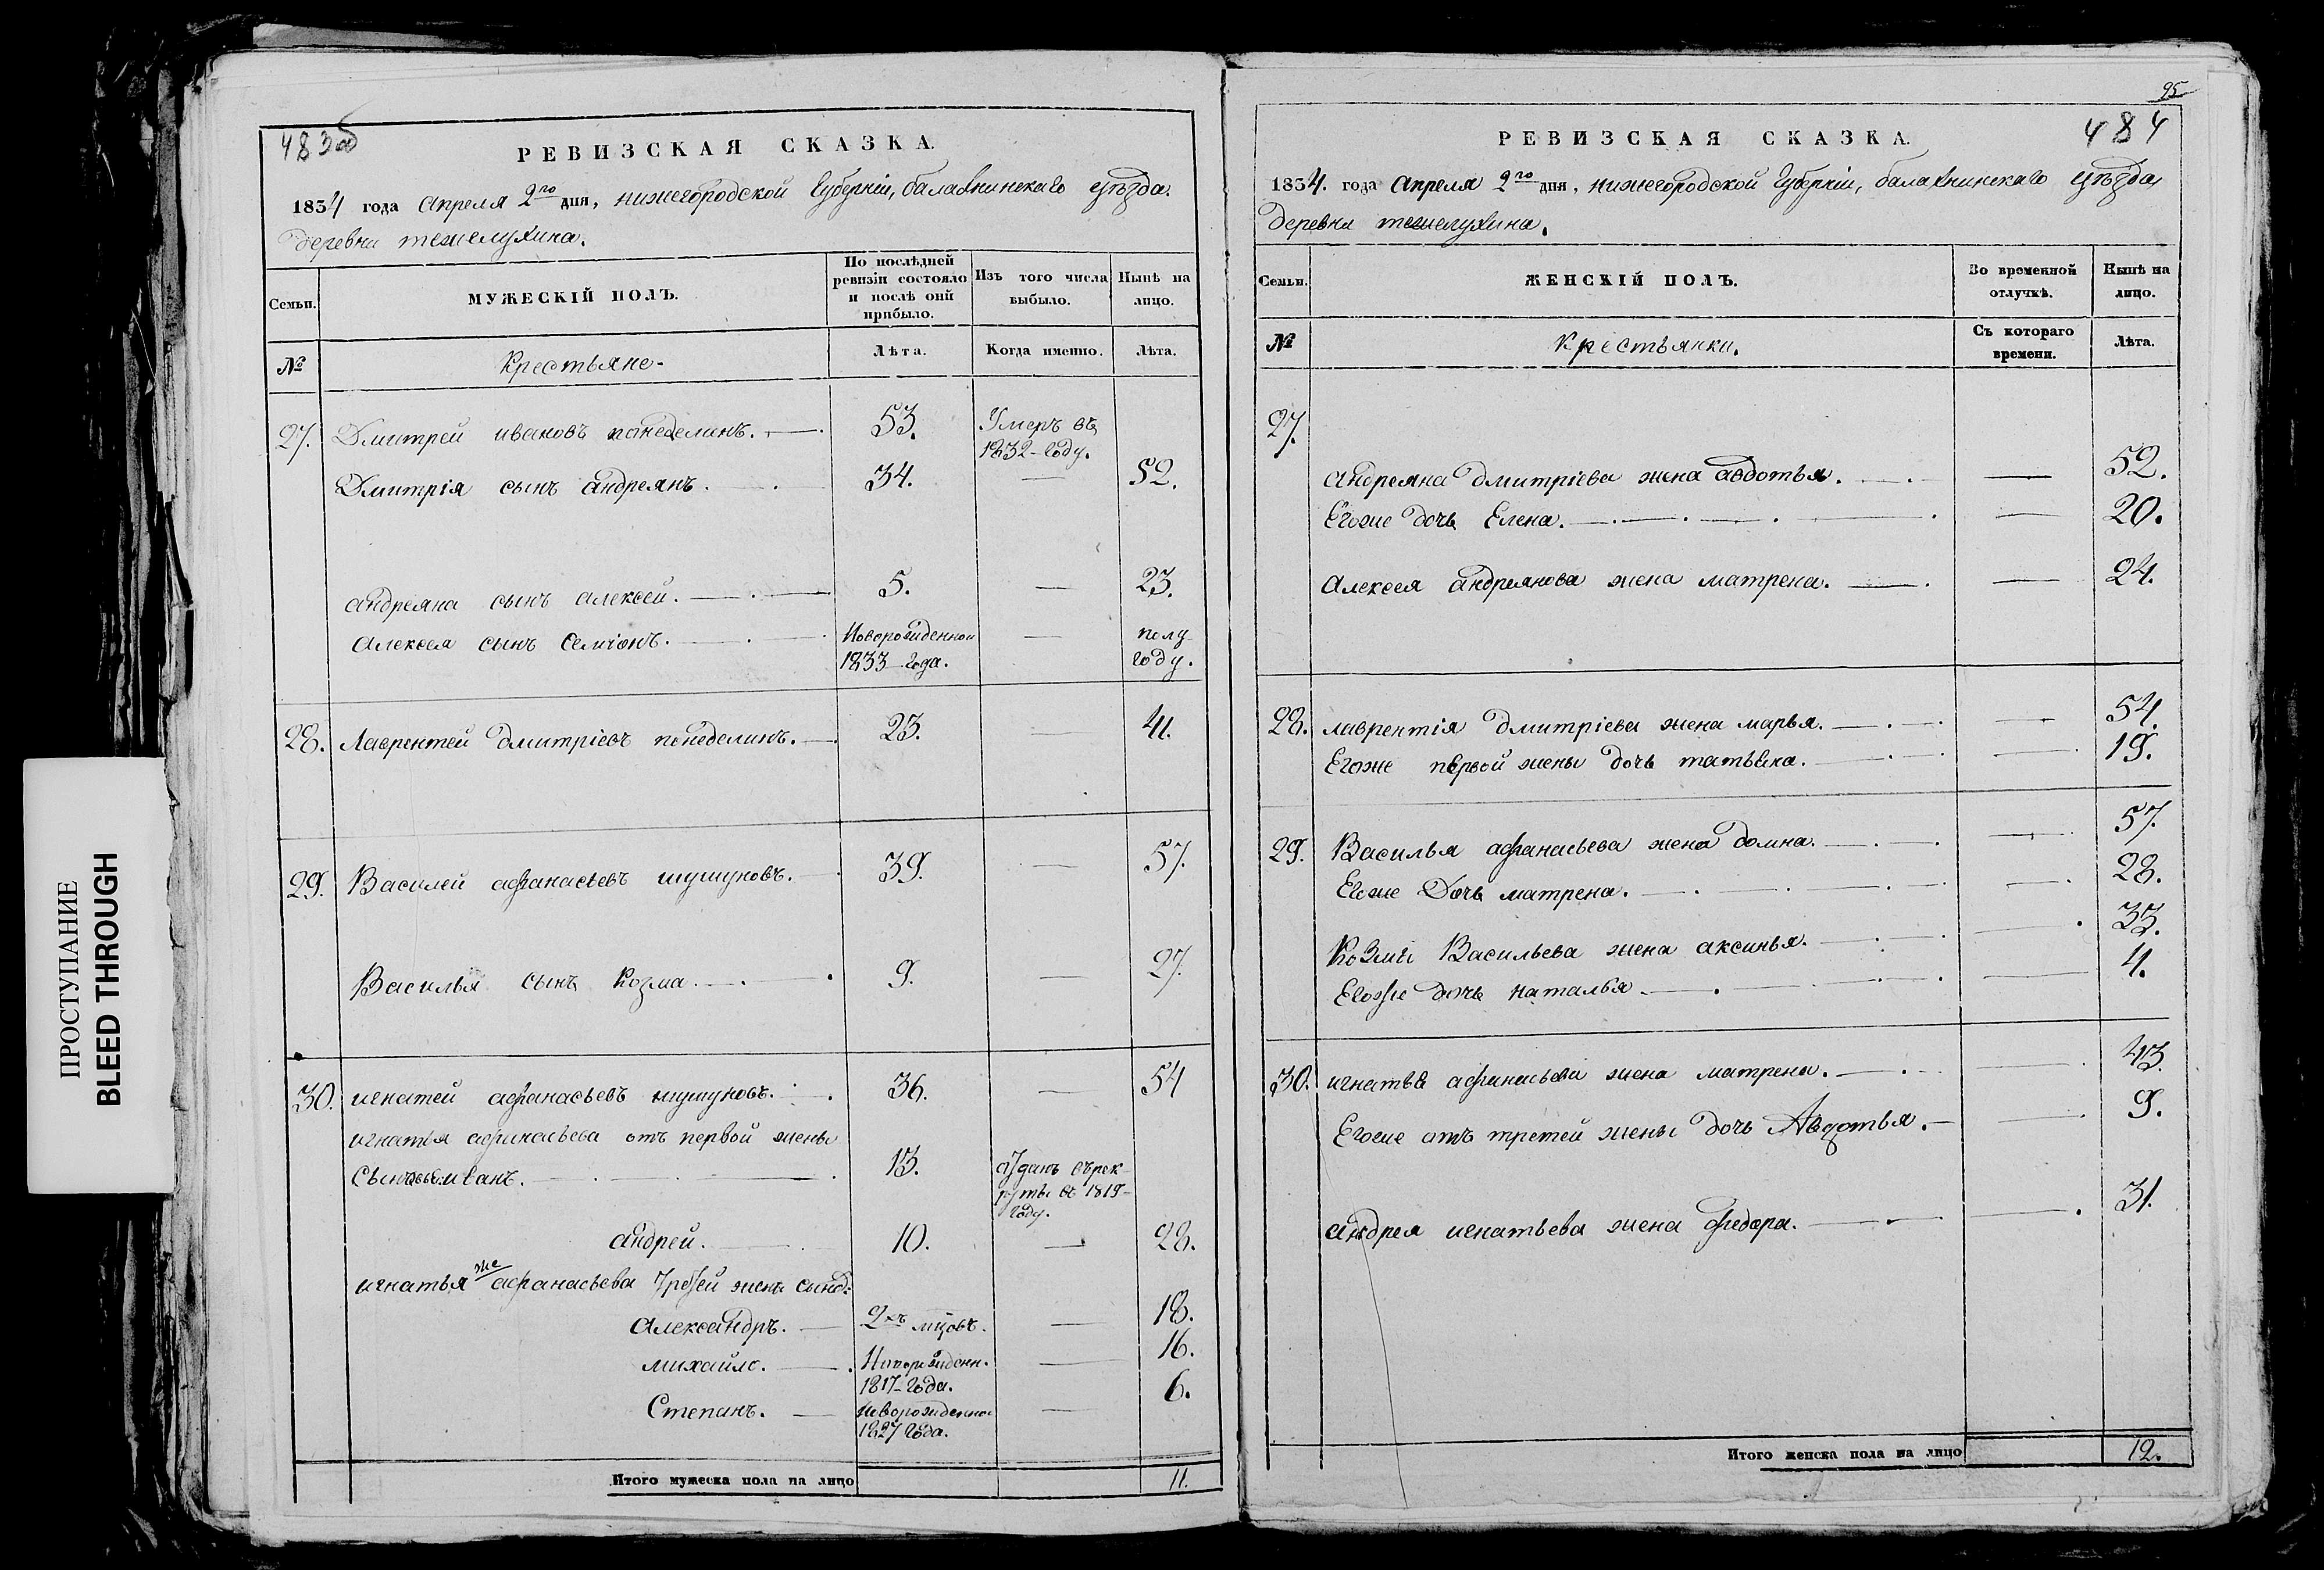 ПРОСТУПАНИЕ
BLEED THROUGH
483об
РЕВИЗСКАЯ СКАЗКА.
1834 года Апреля 2го дня, нижегородской Губерніи, балахнинскаго уѣзда.
деревни тежелухина.
Семьи.
МУЖЕСКІЙ ПОЛЪ.
По послѣдней
ревизіи состояло
и послѣ оній
прибыло.
Изъ того числа
выбыло.
Нынѣ на
лицо.
№
Крестьяне.
Лѣта.
Когда именно.
Лѣта.
27. Дмитрей ивановъ понеделинъ. 53. Умеръ въ
1832-году.
Дмитрія сынъ андреянъ. 34. — 52.
андреяна сынъ алексей. 5. — 23.
алексея сынъ Семіонъ. Новорожденной — полу-
1833-года. году.
28. Лаврентей дмитріевъ понеделинъ. 23. — 41.
29. Василей афанасьевъ шушуновъ. 39. — 57.
Василья сынъ Козма. 9. — 27.
30. игнатей афанасьевъ шушуновъ. 36. — 54
игнатья афанасьева отъ первой жены
сыновья иванъ. 13. отданъ въ рек-
руты въ 1819-
году.
андрей. 10. — 28.
игнатья же афанасьева третей жены сынов:
Александръ. 2хъ мцовъ. — 18.
михайло. Новорожденн. — 16.
1817-года.
Степанъ. новорожденно — 6.
1827 года.
Итого мужеска пола на лицо 11.
95
484
РЕВИЗСКАЯ СКАЗКА.
1834. года Апреля 2го дня, нижегородской Губерніи, балахнинскаго уѣзда,
деревни тежелухина.
Семьи.
ЖЕНСКІЙ ПОЛЪ.
Во временной
отлучкѣ.
Нынѣ на
лицо.
№
Крестьянки.
Съ котораго
времени.
Лѣта.
27.
андреяна дмитріева жена авдотья. — 52.
Егоже дочь Елена. — 20.
Алексея андреянова жена матрена. — 24.
28. лаврентія дмитріева жена марья. — 54.
Егоже первой жены дочь татьяна. — 19.
29. Василья афанасьева жена домна. — 57.
Егоже Дочь матрена. — 28.
Козмы Васильева жена аксинья. — 33.
Егоже дочь наталья. — 4.
30. игнатья афанасьева жена матрена. — 43.
Егоже отъ третей жены дочь Авдотья. — 9.
андрея игнатьева жена федора. — 31.
Итого женска пола на лицо 12.